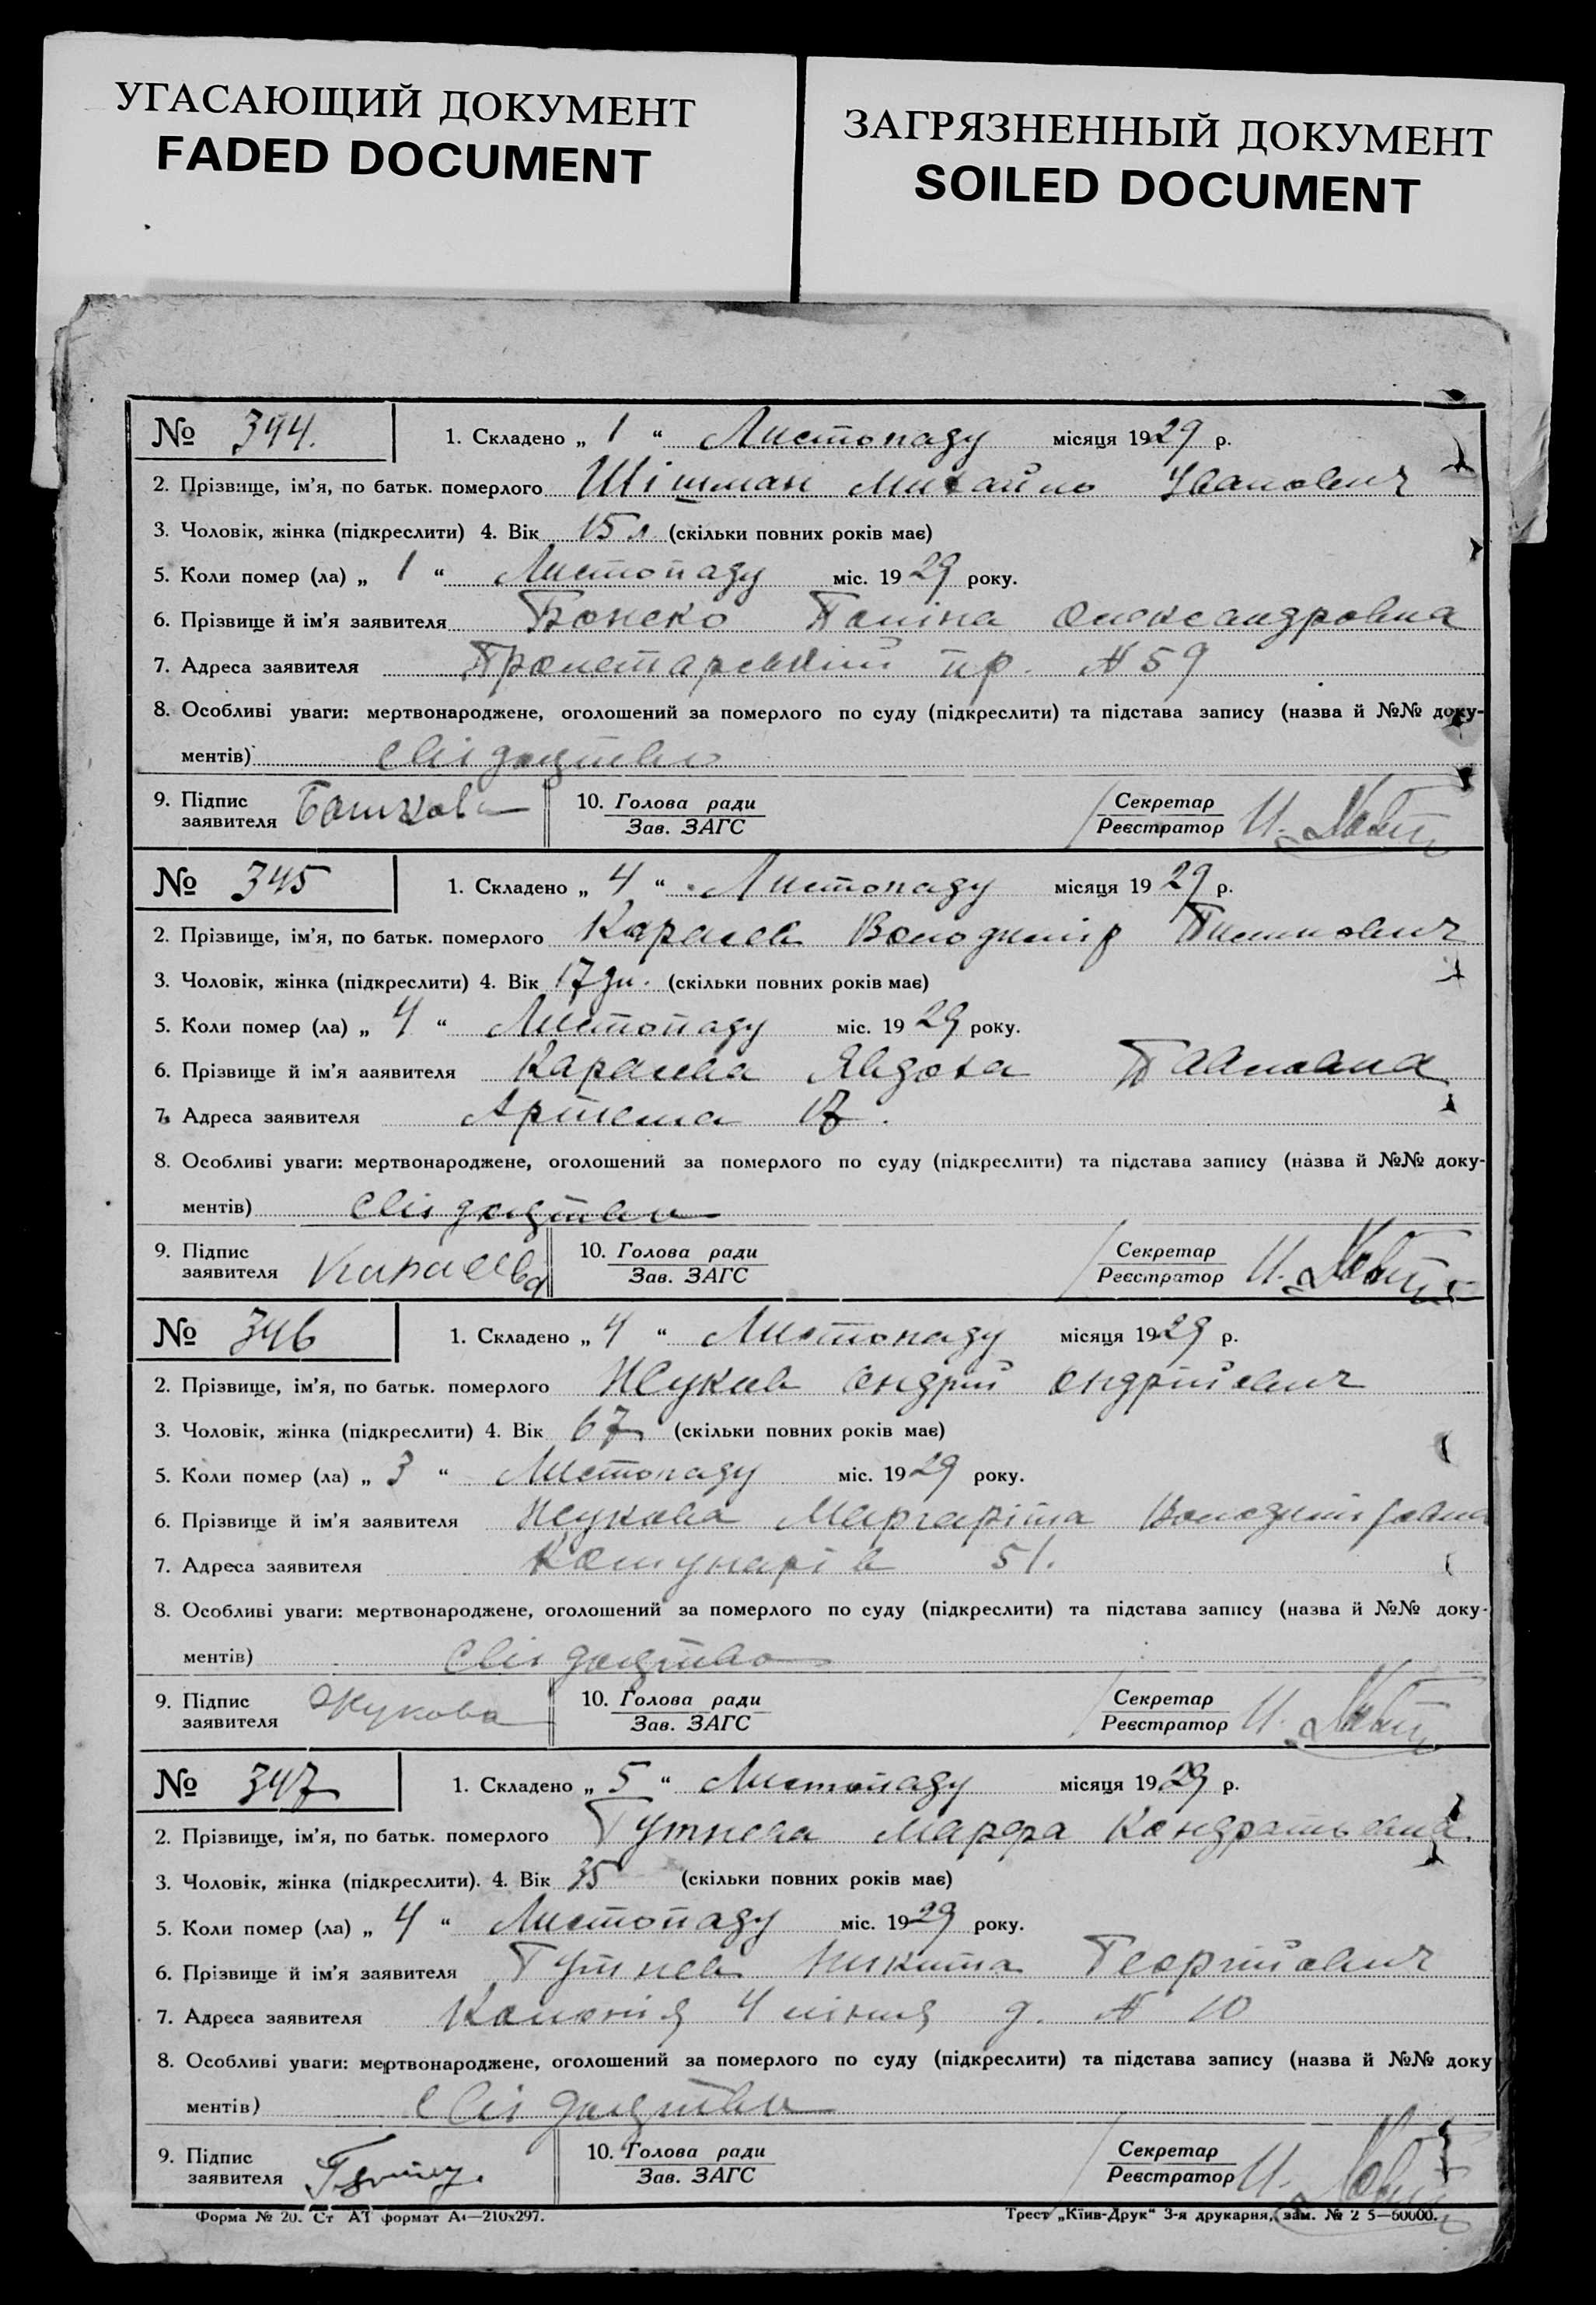 УГАСАЮЩИЙ ДОКУМЕНТ
FADED DOCUMENT
ЗАГРЯЗНЕННЫЙ ДОКУМЕНТ
SOILED DOCUMENT
№ 344. 1. Складено „ 1 “ Листопаду місяця 1929 р.
2. Прізвище, ім’я, по батьк. померлого Шішман Михайло Іванович
3. Чоловік, жінка (підкреслити) 4. Вік 15 л (скільки повних років має)
5. Коли помер (ла) „ 1 “ Листопаду міс. 1929 року.
6. Прізвище й ім’я заявителя Поліна Олександровна
7. Адреса заявителя Пролетарський пр. № 59
8. Особливі уваги: мертвонароджене, оголошений за померлого по суду (підкреслити) та підстава запису (назва й №№ доку-
ментів) Свідоцтво
9. Підпис заявителя 10. Голова ради Зав. ЗАГС Секретар Реєстратор
№ 345 1. Складено „ 4 “ Листопаду місяця 1929 р.
2. Прізвище, ім’я, по батьк. померлого Володимір
3. Чоловік, жінка (підкреслити) 4. Вік 17 дн. (скільки повних років має)
5. Коли помер (ла) „ 4 “ Листопаду міс. 1929 року.
6. Прізвище й ім’я заявителя Явдоха Павловна
7. Адреса заявителя Артема 17.
8. Особливі уваги: мертвонароджене, оголошений за померлого по суду (підкреслити) та підстава запису (назва й №№ доку-
ментів) Свідоцтво
9. Підпис заявителя 10. Голова ради Зав. ЗАГС Секретар Реєстратор
№ 346 1. Складено „ 4 “ Листопаду місяця 1929 р.
2. Прізвище, ім’я, по батьк. померлого Жуков Ондрій Ондрійович
3. Чоловік, жінка (підкреслити) 4. Вік 67 (скільки повних років має)
5. Коли помер (ла) „ 3 “ Листопаду міс. 1929 року.
6. Прізвище й ім’я заявителя Жукова Маргаріта Володиміровна
7. Адреса заявителя Комунарів 51.
8. Особливі уваги: мертвонароджене, оголошений за померлого по суду (підкреслити) та підстава запису (назва й №№ доку-
ментів) Свідоцтво
9. Підпис заявителя Жукова 10. Голова ради Зав. ЗАГС Секретар Реєстратор
№ 347 1. Складено „ 5 “ Листопаду місяця 1929 р.
2. Прізвище, ім’я, по батьк. померлого Гутнева Марфа Кондратьевна.
3. Чоловік, жінка (підкреслити). 4. Вік 35 (скільки повних років має)
5. Коли помер (ла) „ 4 “ Листопаду міс. 1929 року.
6. Прізвище й ім’я заявителя Гутнев Никита Георгійович
7. Адреса заявителя Колонія 4 лінія д. № 10
8. Особливі уваги: мертвонароджене, оголошений за померлого по суду (підкреслити) та підстава запису (назва й №№ доку
ментів) Свідоцтво
9. Підпис заявителя 10. Голова ради Зав. ЗАГС Секретар Реєстратор
Форма № 20. Ст АТ формат А4—210х297. Трест „Київ-Друк“ 3-я друкарня, зам. №